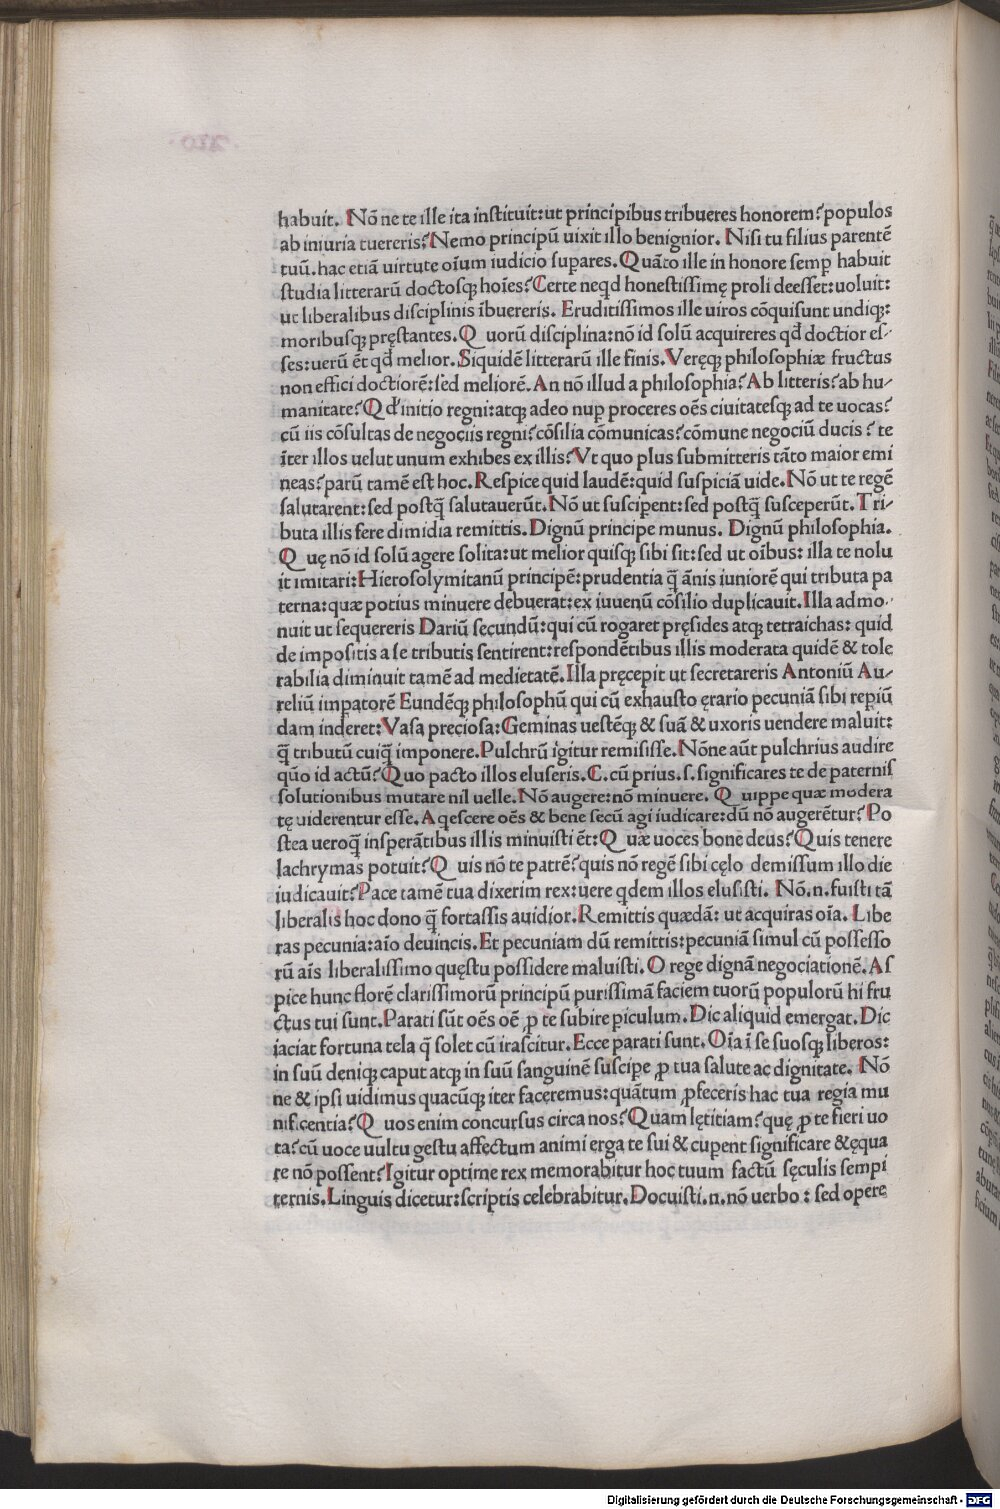 habuit. Nō ne te ille ita instituit: ut principibus tribueres honorem? populos
ab iniuria tuereris? Nemo principū uixit illo benignior. Nisi tu filius parentē
tuū. hac etiā uirtute oīum iudicio superes. Quāto ille in honore semp̲ habuit
studia litterarū doctosqꝫ hoīes? Certe neqd honestissimę proli deesset: uoluit:
ut liberalibus disciplinis ībuereris. Eruditissimos ille uiros cōquisunt undiqꝫ:
moribusqꝫ pręstantes. Quorū disciplina: nō id solū acquireres qđ doctior es-
ses: uerū ēt qđ melior. Siquidē litterarū ille finis. Veręqꝫ philosophiæ fructus
non effici doctiorē: sed meliorē. An nō illud a philosophia? Ab litteris? ab hu-
manitate? Qđ initio regni: atqꝫ adeo nup̲ proceres oēs ciuitatesqꝫ ad te uocas?
cū iis cōsultas de negociis regni? cōsilia cōmunicas? cōmune negociū ducis? te
īter illos uelut unum exhibes ex illis? Vt quo plus submitteris tāto maior emi
neas? parū tamē est hoc. Respice quid laudē: quid suspiciā uide. Nō ut te regē
salutarent: sed postq̄ salutauerūt. Nō ut suscipent: sed postq̄ susceperūt. Tri-
buta illis fere dimidia remittis. Dignū principe munus. Dignū philosophia.
Quę nō id solū agere solita: ut melior quisqꝫ sibi sit: sed ut oībus: illa te nolu
it imitari: Hierosolymitanū principē: prudentia q̄ ānis iuniorē qui tributa pa
terna: quæ potius minuere debuerat: ex iuuenū cōsilio duplicauit. Illa admo-
nuit ut sequereris Dariū secundū: qui cū rogaret pręsides atqꝫ tetraichas: quid
de impositis a se tributis sentirent: respondētibus illis moderata quidē & tole
rabilia diminuit tamē ad medietatē. Illa pręcepit ut secretareris Antoniū Au-
reliū imp̲atorē Eundēqꝫ philosophū qui cū exhausto ęrario pecuniā sibi rep̲iū
dam inderet: Vasa preciosa: Geminas uestēqꝫ & suā & uxoris uendere maluit:
q̄ tributū cuiq̄ imponere. Pulchrū igitur remisisse. Nōne aūt pulchrius audire
quō id actū? Quo pacto illos eluseris. C. cū prius .s. significares te de paternis
solutionibus mutare nil uelle. Nō augere: nō minuere. Quippe quæ modera
tę uiderentur esse. Aqescere oēs & bene secū agi iudicare: dū nō augerētur? Po
stea ueroq̄ insperātibus illis minuisti ēt: Quæ uoces bone deus? Quis tenere
lachrymas potuit? Quis nō te patrē? quis nō regē sibi cęlo demissum illo die
iudicauit? Pace tamē tua dixerim rex: uere qdem illos elusisti. Nō .n. fuisti tā
liberalis hoc dono q̄ fortassis auidior. Remittis quædā: ut acquiras oīa. Libe
ras pecunia: aīo deuincis. Et pecuniam dū remittis: pecuniā simul cū possesso
rū aīs liberalissimo quęstu possidere maluisti. O rege dignā negociationē. As
pice hunc florē clarissimorū principū purissimā faciem tuorū populorū hi fru
ctus tui sunt. Parati sūt oēs oē ꝓ te subire p̲iculum. Dic aliquid emergat. Dic
iaciat fortuna tela q̄ solet cū irascitur. Ecce parati sunt. Oīa ī se suosqꝫ liberos:
in suū deniqꝫ caput atqꝫ in suū sanguinē suscipe ꝓ tua salute ac dignitate. Nō
ne & ipsi uidimus quacūqꝫ iter faceremus: quātum ꝓfeceris hac tua regia mu
nificentia? Quos enim concursus circa nos? Quam lętitiam? quę ꝓ te fieri uo
ta? cū uoce uultu gestu affectum animi erga te sui & cup̲ent significare & ęqua
re nō possent? Igitur optime rex memorabitur hoc tuum factū sęculis sempi
ternis. Linguis dicetur: scriptis celebrabitur. Docuisti .n. nō uerbo: sed opere
Digitalisierung gefördert durch die Deutsche Forschungsgemeinschaft - DFG